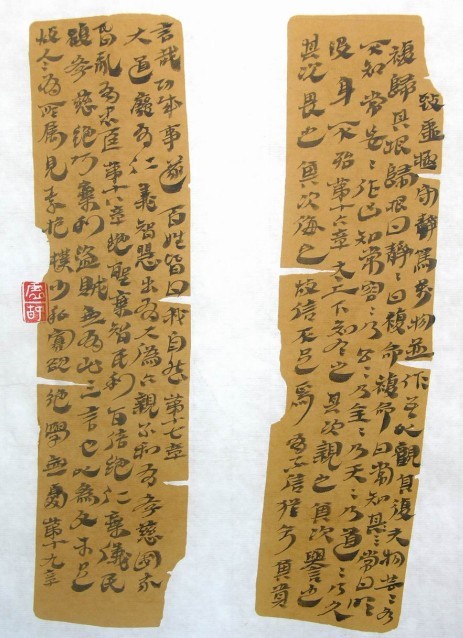 致虛極守靜篤萬物並作吾以觀其復天物芸〻各
複歸其根歸根曰靜〻曰複命複命曰常知常曰明
不知常妄〻作凶知常容〻乃公〻乃王〻乃天〻乃道〻乃久
没身不殆第十六章太上下知有之其次親之其次譽之
其次畏之其次侮之故信不足焉有不信猶兮其貴
言哉功成事遂百姓皆曰我自然第十七章
大道廢有仁義智慧出有大偽六親不和有孝慈國家
昏亂有忠臣第十八章絶聖棄智民利百倍絶仁棄義民
複孝慈絶巧棄利盜賊無有此三言也以為文未足
故令有所屬見素抱樸少私寡欲絶學無憂第十九章